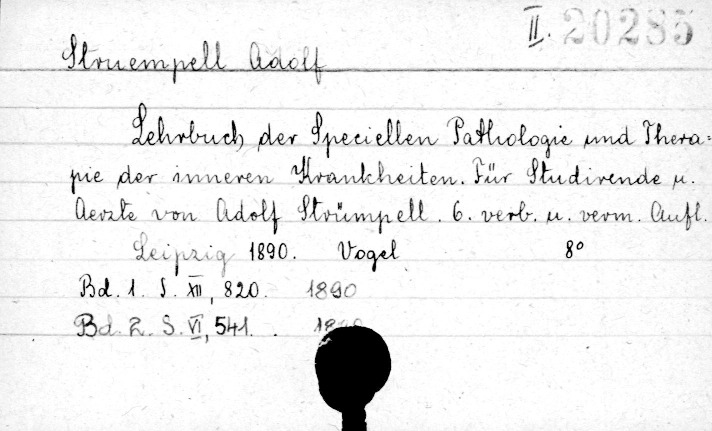 II. 20285
Struempell Adolf
Lehrbuch der Speciellen Pathologie und Thera=
pie der inneren Krankheiten. Für Studirende u.
Aerzte von Adolf Strümpell. 6. verb. u. verm. Aufl.
Leipzig 1890. Vogel 8°
Bd. 1. S. XII, 820. 1890
Bd. 2. S. VI, 541.